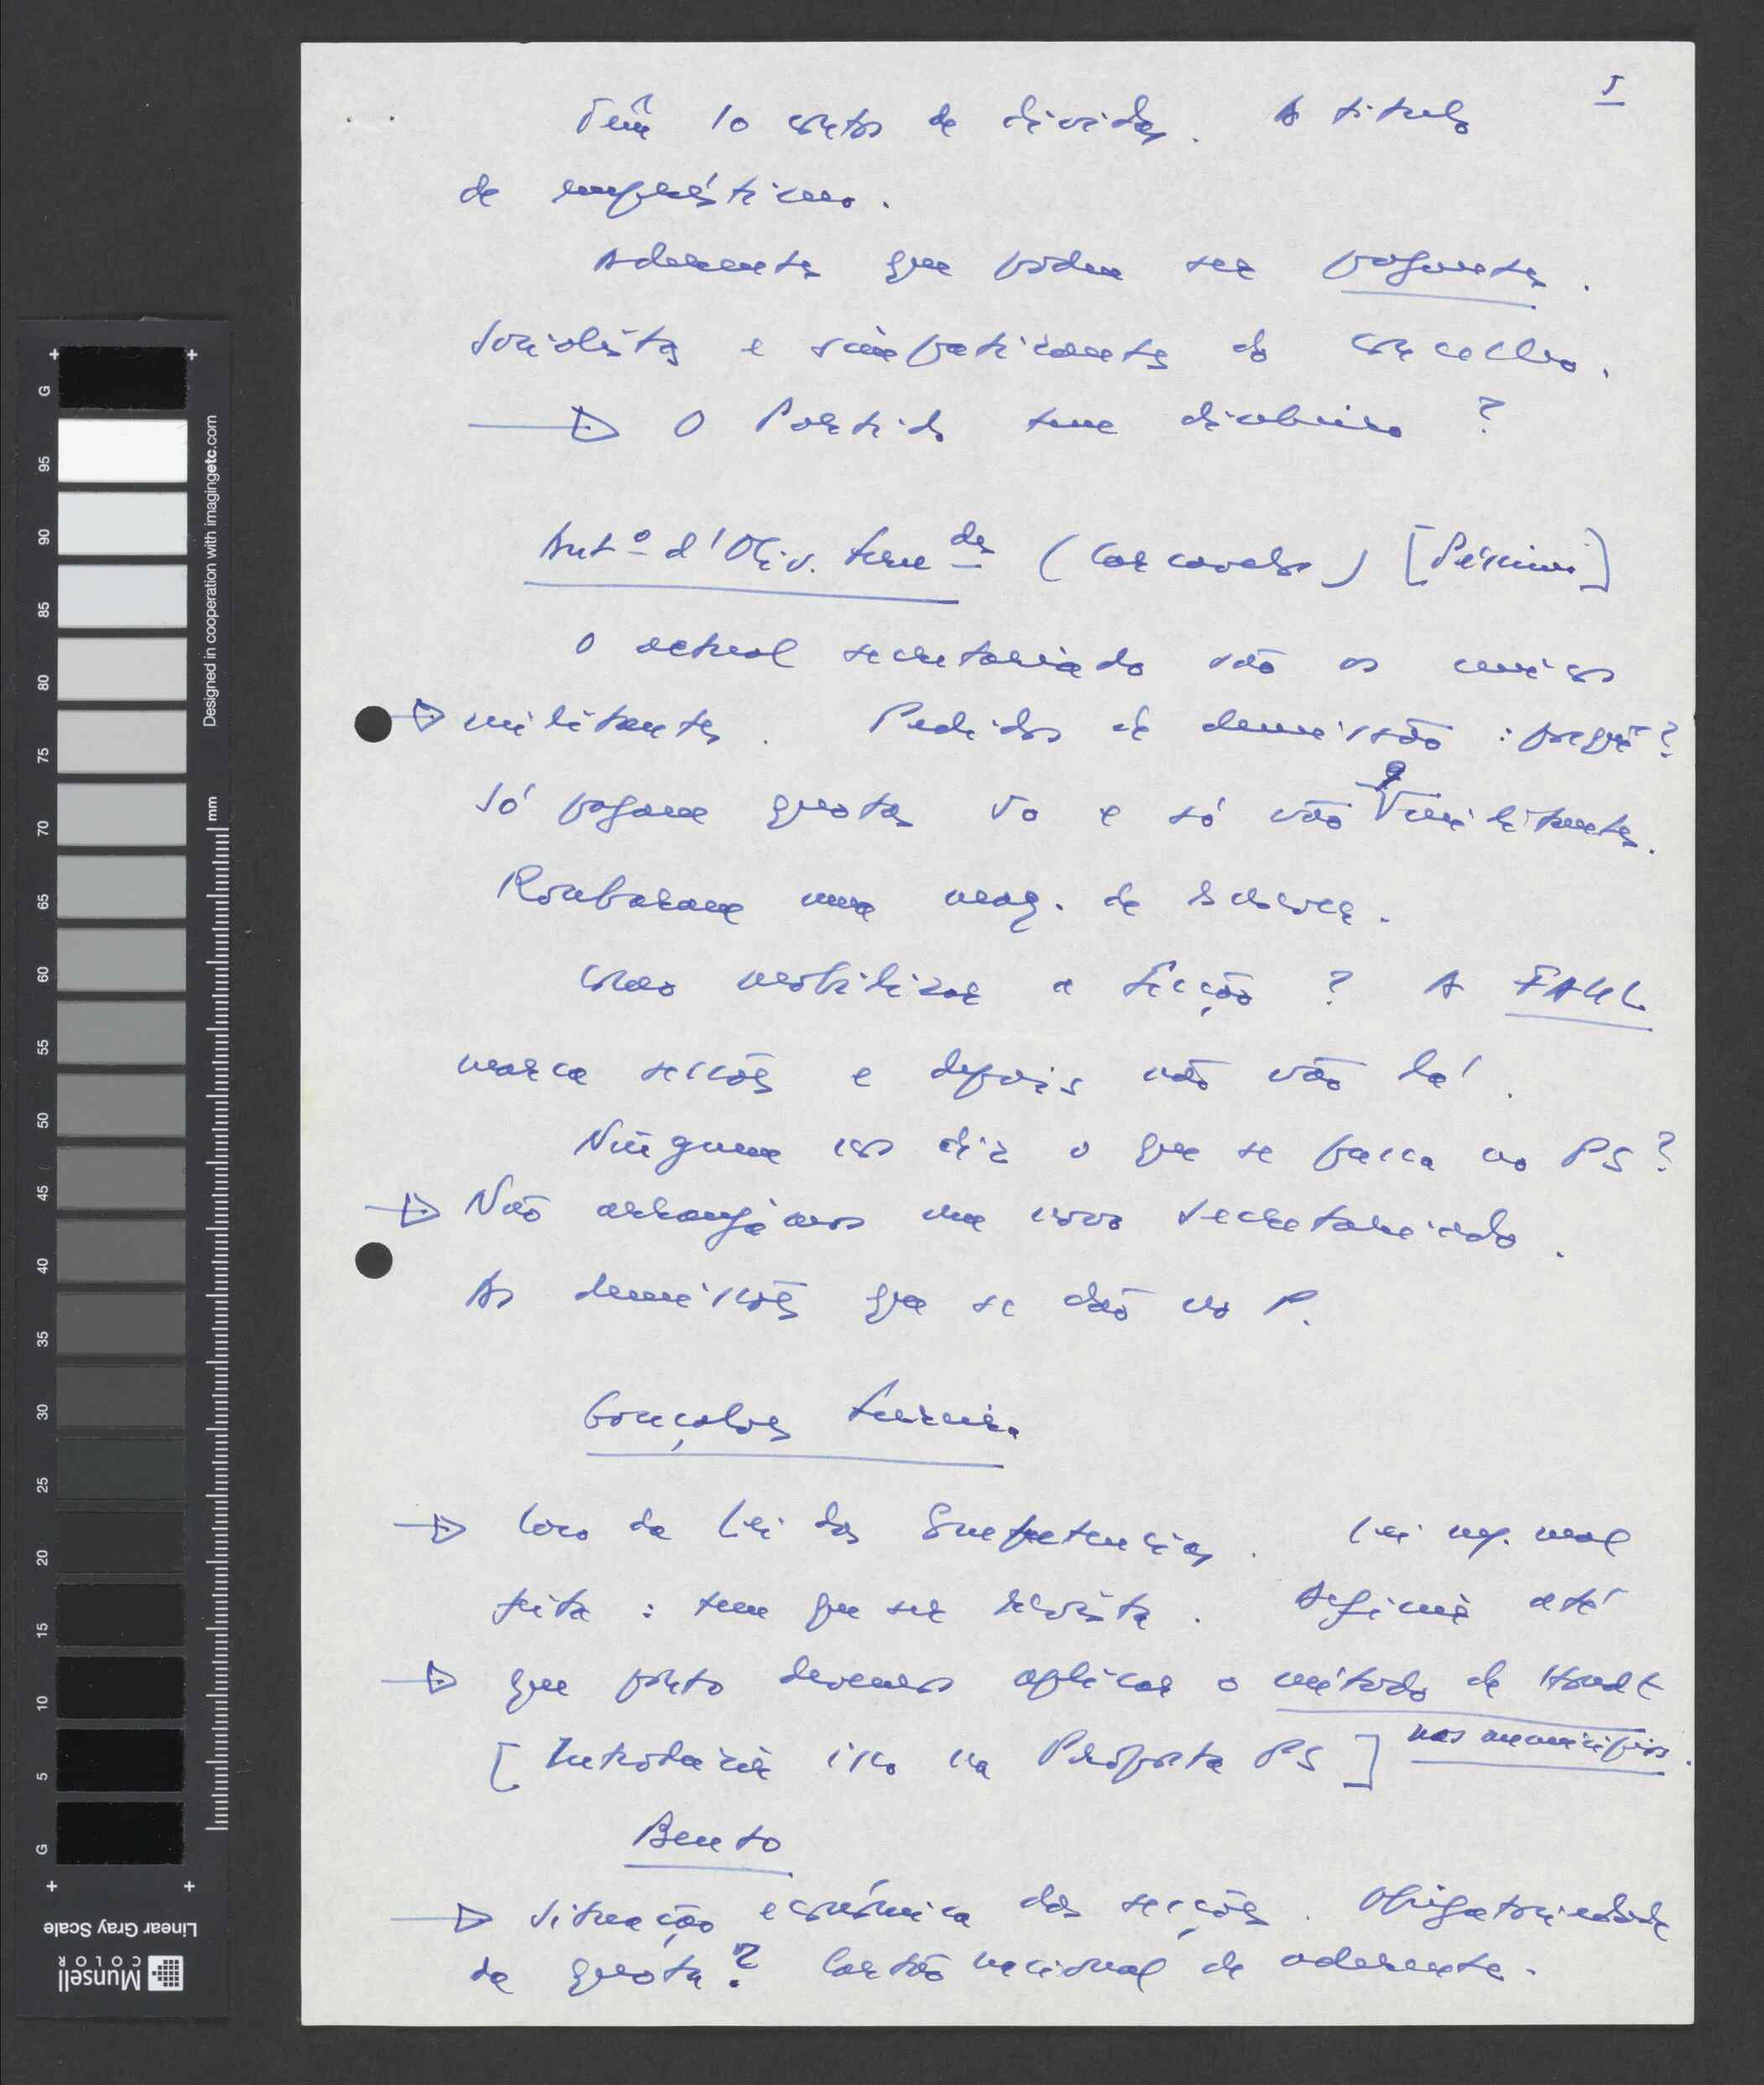 5
Têm 10 contos de dívidas. A título
de empréstimo.
Aderentes que podem ser pagantes.
Socialistas e simpatizantes do concelho.
→ O Partido tem dinheiro?
Antº d'Oliv. (Carcavelos) [Péssimo]
O actual secretariado são os únicos
→ militantes. Pedidos de demissão: porquê?
Só pagam quotas 50 e só vão 9 militantes.
Roubaram uma maq. de escrever.
Como mobilizar a Secção? A FAUL
marca sessões e depois não vão lá.
Ninguém nos diz o que se passa no PS?
→ Não arranjamos um novo secretariado.
As demissões que se dão no P.
Gonçalves Ferreira
→ Caso da Lei das Competências. Lei mal
feita: tem que ser revista. Definir até
→ que ponto devemos aplicar o método de Hondt
[Introduzir isso na Proposta PS] nos municípios.
Bento
→ Situação económica das secções. Obrigatoriedade
da quota? Cartão nacional de aderente.
G
95
90
85
80
75
70
65
60
55
50
45
40
35
30
25
20
15
10
5
G
Designed in cooperation with imagingetc.com
mm
Linear Gray Scale
Munsell
COLOR